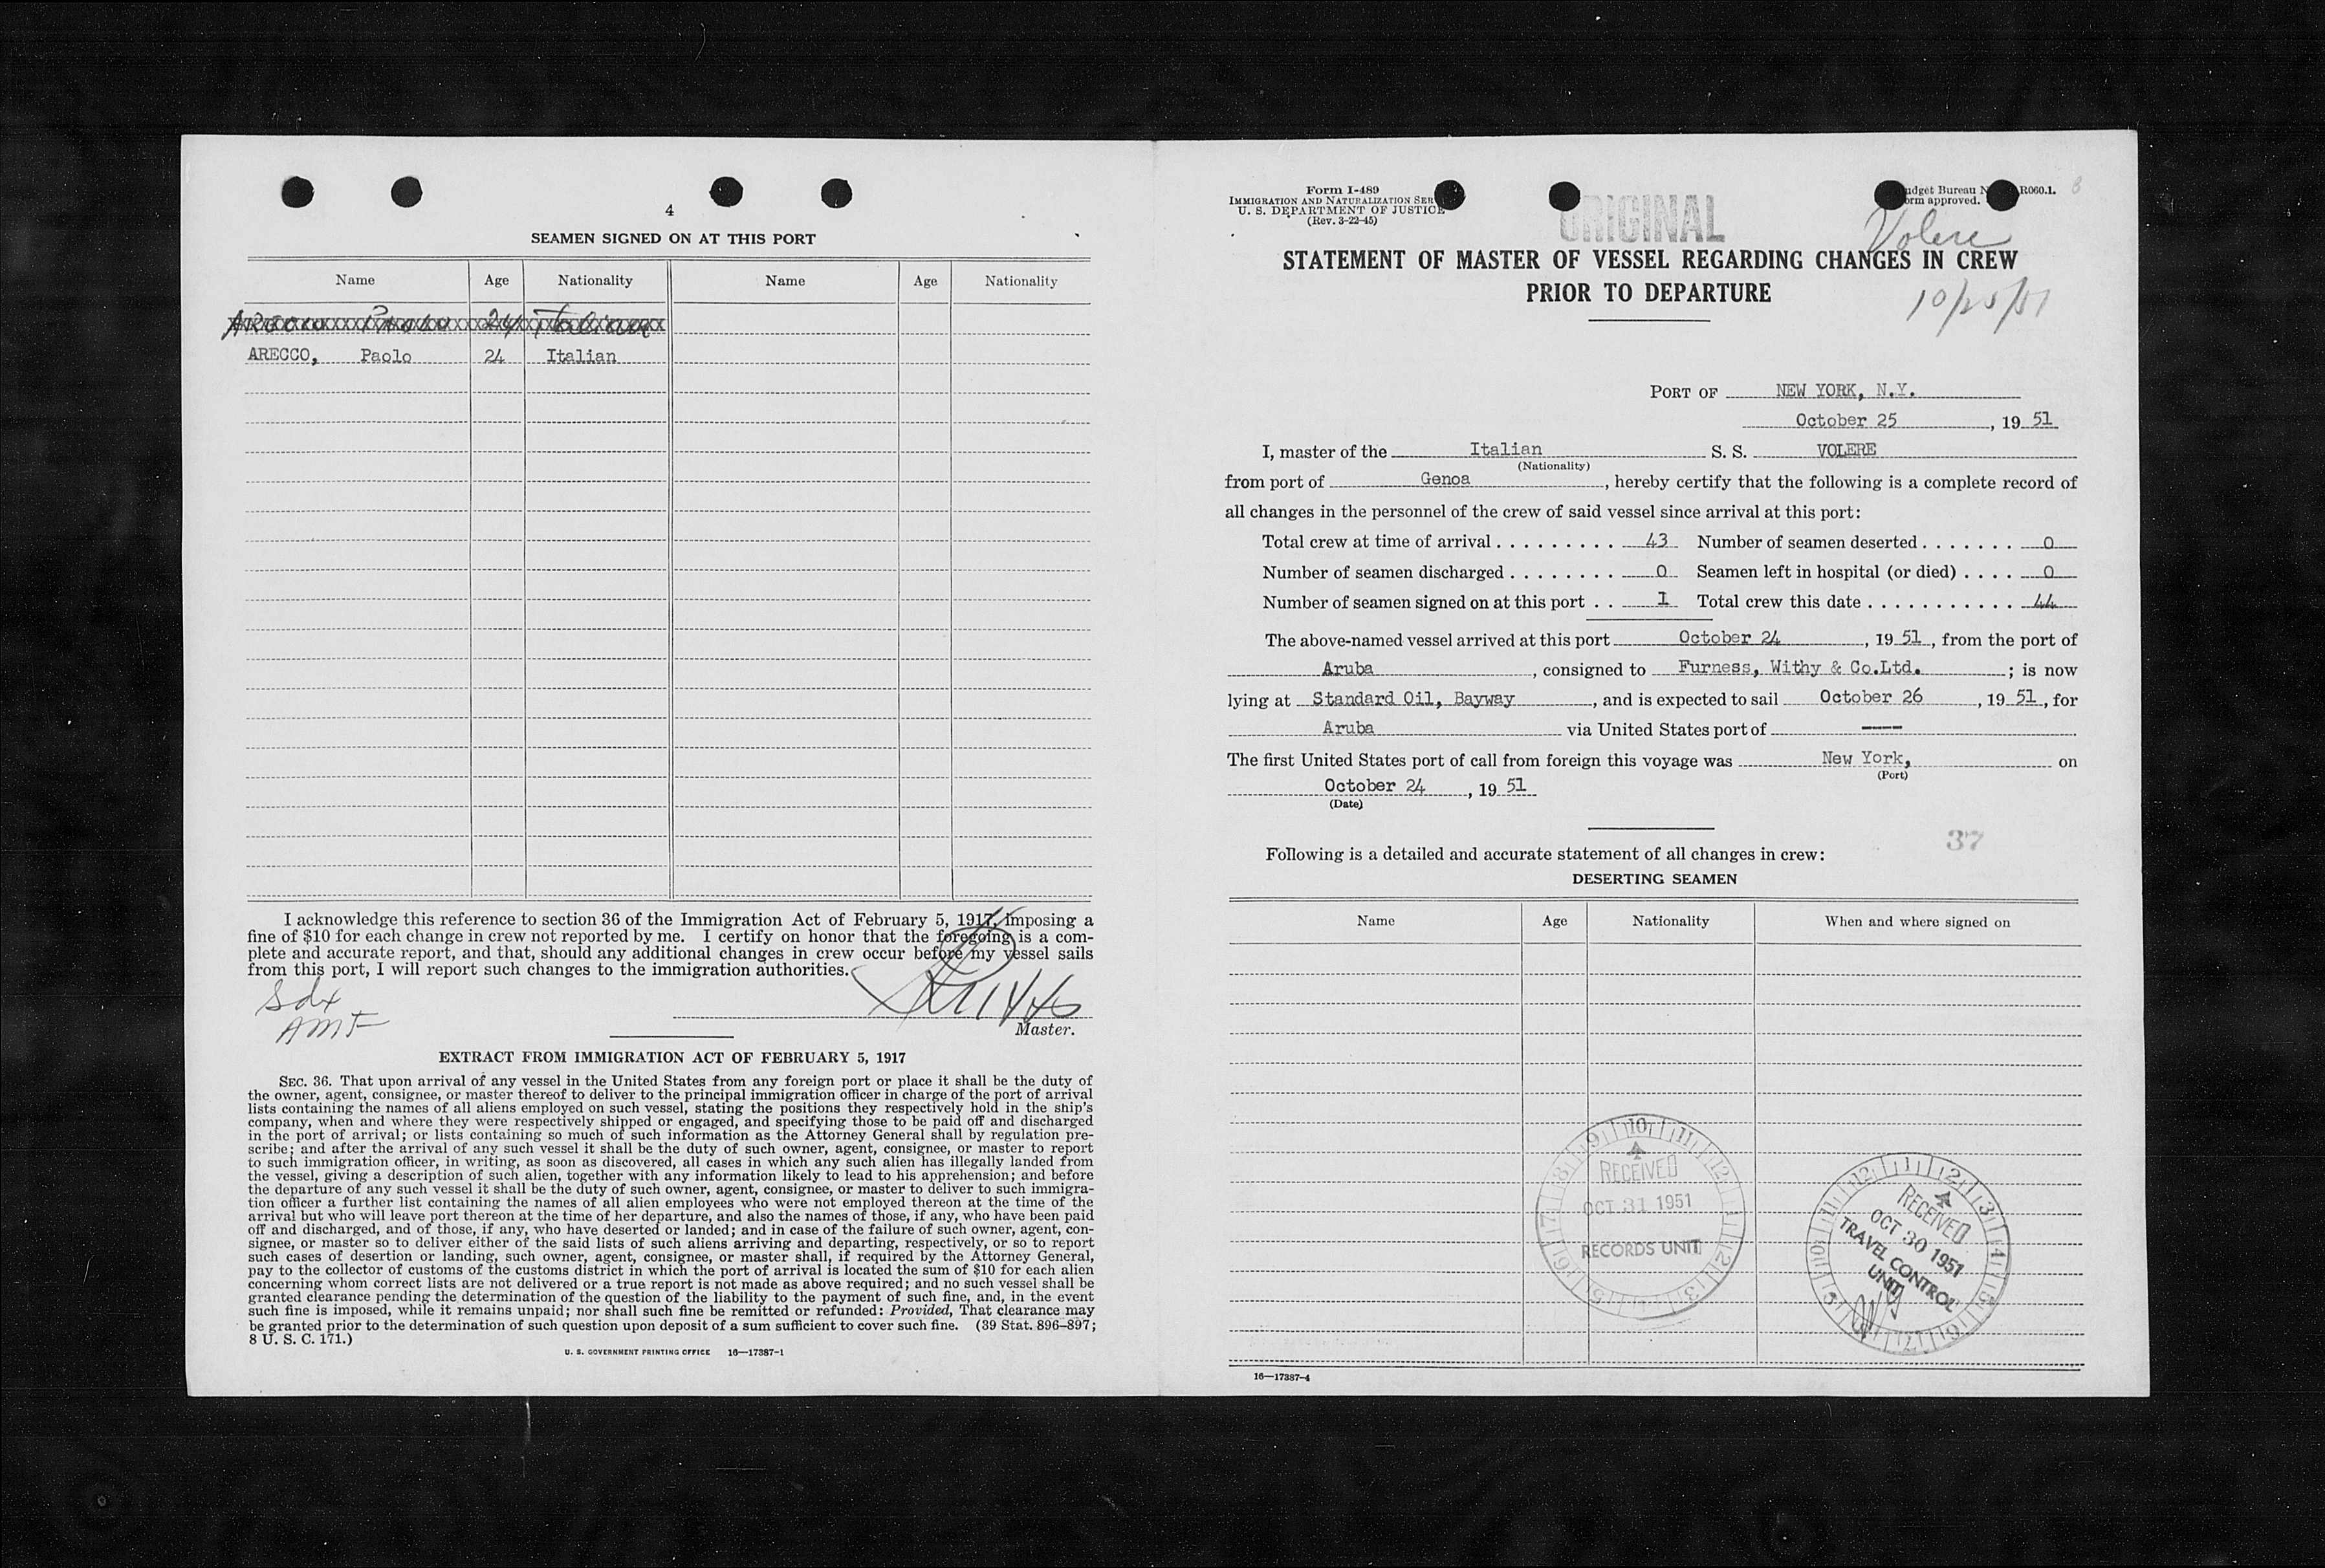 4
SEAMEN SIGNED ON AT THIS PORT
Name Age Nationality Name Age Nationality
Arecco Paolo 24 Italian
ARECCO, Paolo 24 Italian
I acknowledge this reference to section 36 of the Immigration Act of February 5, 1917, imposing a
fine of $10 for each change in crew not reported by me. I certify on honor that the foregoing is a com-
plete and accurate report, and that, should any additional changes in crew occur before my vessel sails
from this port, I will report such changes to the immigration authorities.
AMF
Master.
EXTRACT FROM IMMIGRATION ACT OF FEBRUARY 5, 1917
SEC. 36. That upon arrival of any vessel in the United States from any foreign port or place it shall be the duty of
the owner, agent, consignee, or master thereof to deliver to the principal immigration officer in charge of the port of arrival
lists containing the names of all aliens employed on such vessel, stating the positions they respectively hold in the ship's
company, when and where they were respectively shipped or engaged, and specifying those to be paid off and discharged
in the port of arrival; or lists containing so much of such information as the Attorney General shall by regulation pre-
scribe; and after the arrival of any such vessel it shall be the duty of such owner, agent, consignee, or master to report
to such immigration officer, in writing, as soon as discovered, all cases in which any such alien has illegally landed from
the vessel, giving a description of such alien, together with any information likely to lead to his apprehension; and before
the departure of any such vessel it shall be the duty of such owner, agent, consignee, or master to deliver to such immigra-
tion officer a further list containing the names of all alien employees who were not employed thereon at the time of the
arrival but who will leave port thereon at the time of her departure, and also the names of those, if any, who have been paid
off and discharged, and of those, if any, who have deserted or landed; and in case of the failure of such owner, agent, con-
signee, or master so to deliver either of the said lists of such aliens arriving and departing, respectively, or so to report
such cases of desertion or landing, such owner, agent, consignee, or master shall, if required by the Attorney General,
pay to the collector of customs of the customs district in which the port of arrival is located the sum of $10 for each alien
concerning whom correct lists are not delivered or a true report is not made as above required; and no such vessel shall be
granted clearance pending the determination of the question of the liability to the payment of such fine, and, in the event
such fine is imposed, while it remains unpaid; nor shall such fine be remitted or refunded: Provided, That clearance may
be granted prior to the determination of such question upon deposit of a sum sufficient to cover such fine. (39 Stat. 896–897;
8 U. S. C. 171.)
U. S. GOVERNMENT PRINTING OFFICE 16—17387-1
Form I-489
IMMIGRATION AND NATURALIZATION SER
U. S. DEPARTMENT OF JUSTICE
(Rev. 3-22-45)
ORIGINAL
udget Bureau N R060.1.
orm approved.
Volere
STATEMENT OF MASTER OF VESSEL REGARDING CHANGES IN CREW
PRIOR TO DEPARTURE
10/25/51
PORT OF NEW YORK, N.Y.
October 25, 19 51
I, master of the Italian S. S. VOLERE
(Nationality)
from port of Genoa, hereby certify that the following is a complete record of
all changes in the personnel of the crew of said vessel since arrival at this port:
Total crew at time of arrival . . . . . . . . . 43 Number of seamen deserted . . . . . . . 0
Number of seamen discharged . . . . . . . . 0 Seamen left in hospital (or died) . . . . 0
Number of seamen signed on at this port . . 1 Total crew this date . . . . . . . . . . . 44
The above-named vessel arrived at this port October 24, 19 51, from the port of
Aruba, consigned to Furness, Withy & Co.Ltd. ; is now
lying at Standard Oil, Bayway, and is expected to sail October 26, 19 51, for
Aruba via United States port of ----
The first United States port of call from foreign this voyage was New York, on
(Port)
October 24, 19 51
(Date)
37
Following is a detailed and accurate statement of all changes in crew:
DESERTING SEAMEN
Name Age Nationality When and where signed on
RECEIVED
OCT 31 1951
RECORDS UNIT
RECEIVED
OCT 30 1951
TRAVEL CONTROL
UNIT
16—17387-4